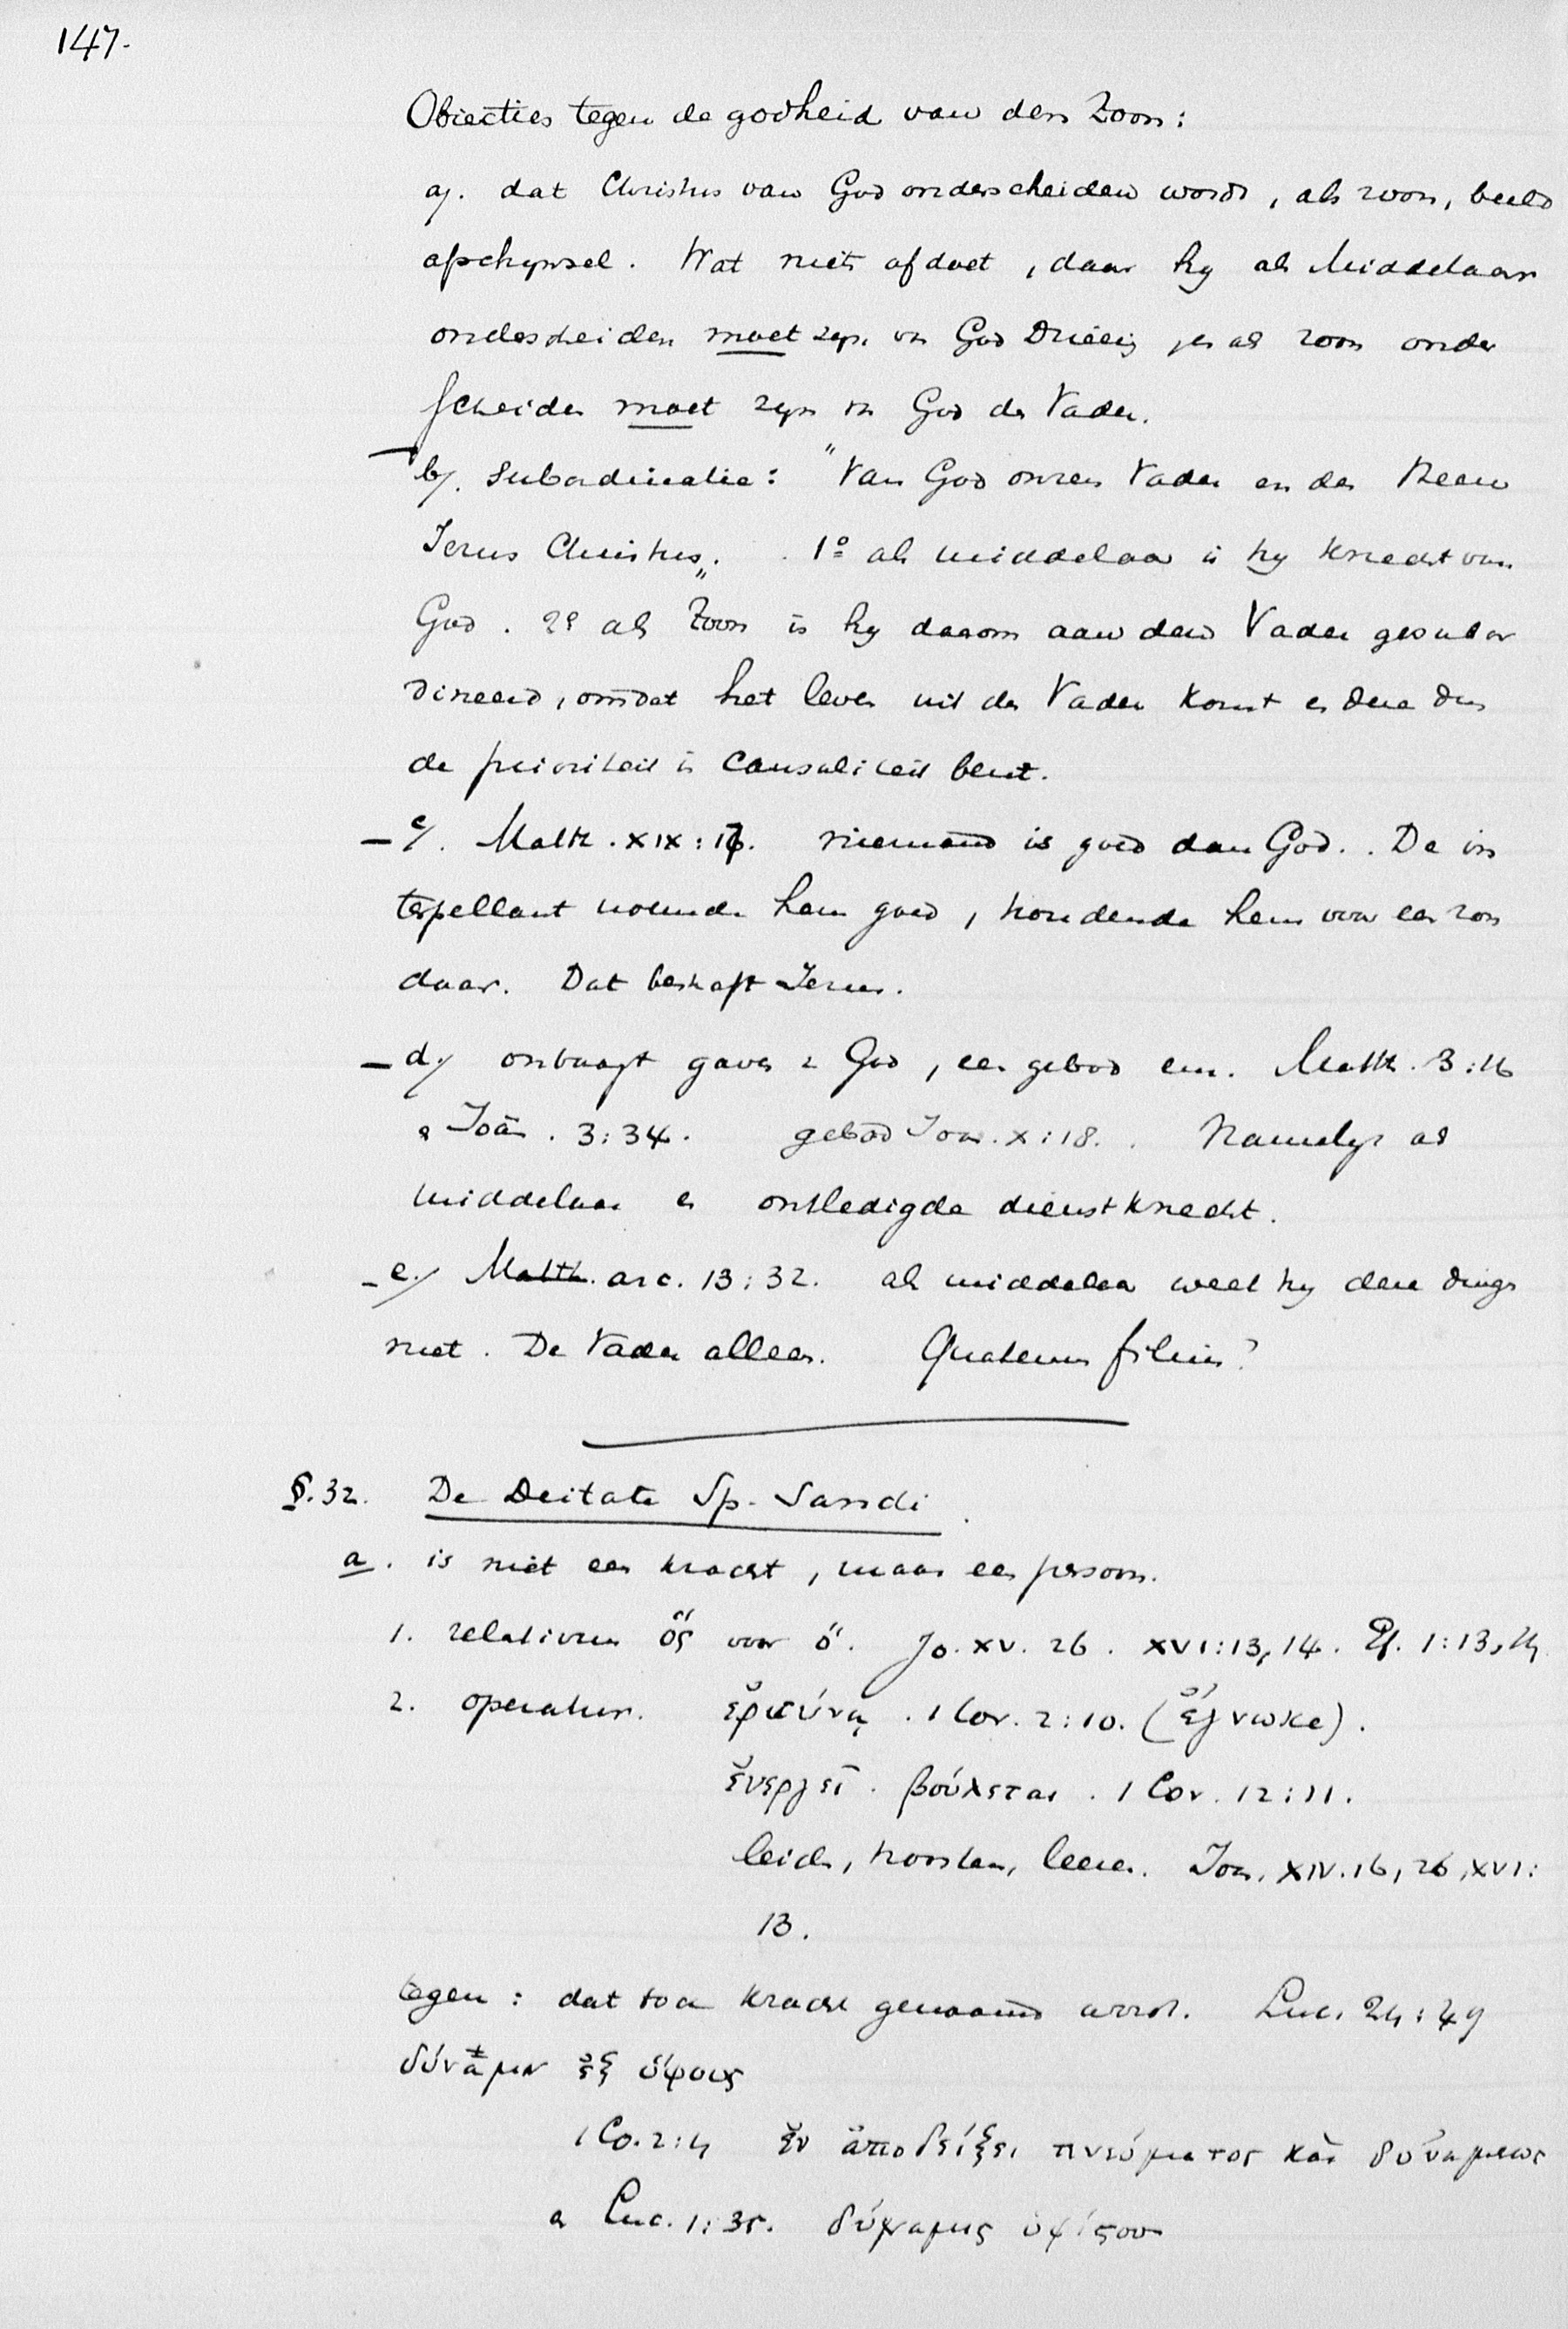 147.
Obiecties tegen de godheid van den Zoon:
a/. dat Christus van God onderscheiden wordt, als zoon, beeld
afschijnsel. Wat niets afdoet, daar hy als Middelaar
onderscheiden moet zyn vn God Drieëenig en als zoon onder
scheiden moet zyn vn God den Vader.
b/. Subordinatie: "Van God onzen Vader en den Heere
Jezus Christus„. 1º als middelaar is hy knecht van
God. 2º als Zoon is hy daarom aan den Vader gesubor
dineerd, omdat het leven uit den Vader komt en deze dus
de prioriteit in Causaliteit bezit.
– c/. Matth. XIX:17. niemand is goed dan God. De in
terpellant noemde hem goed, houdende hem voor een zon
daar. Dat bestraft Jezus.
– d/ ontvangt gaven v God, een gebod enz. Matth. 3:16
en Joän. 3:34. gebod Joan. X:18. Namelyk als
middelaar en ontledigde dienstknecht.
– e/ Matth. arc. 13:32. als middelaar weet hy deze dingen
niet. De Vader alleen. Quatenus filius?
§. 32. De Deitate Sp. Sancti.
a. is niet een kracht, maar een persoon.
1. relativum ὅς voor ὅ. Jo. XV. 26. XVI:13,14. Ef. 1:13,14
2. operatur. ἐρευνᾳ. 1 Cor. 2:10. (ἔγνωκε).
ἐνεργεῖ. βούλεται. 1 Cor. 12:11.
leiden, troosten, leeren. Joan. XIV. 16, 26, XVI:
13.
tegen: dat toch kracht genaamd wordt. Luc. 24:49
δύναμιν ἐξ ὕψους
1 Co. 2:4 ἐν ἀποδείξει πνεύματος καὶ δυνάμεως
en Luc. 1:35. δύναμις ὑψίστου